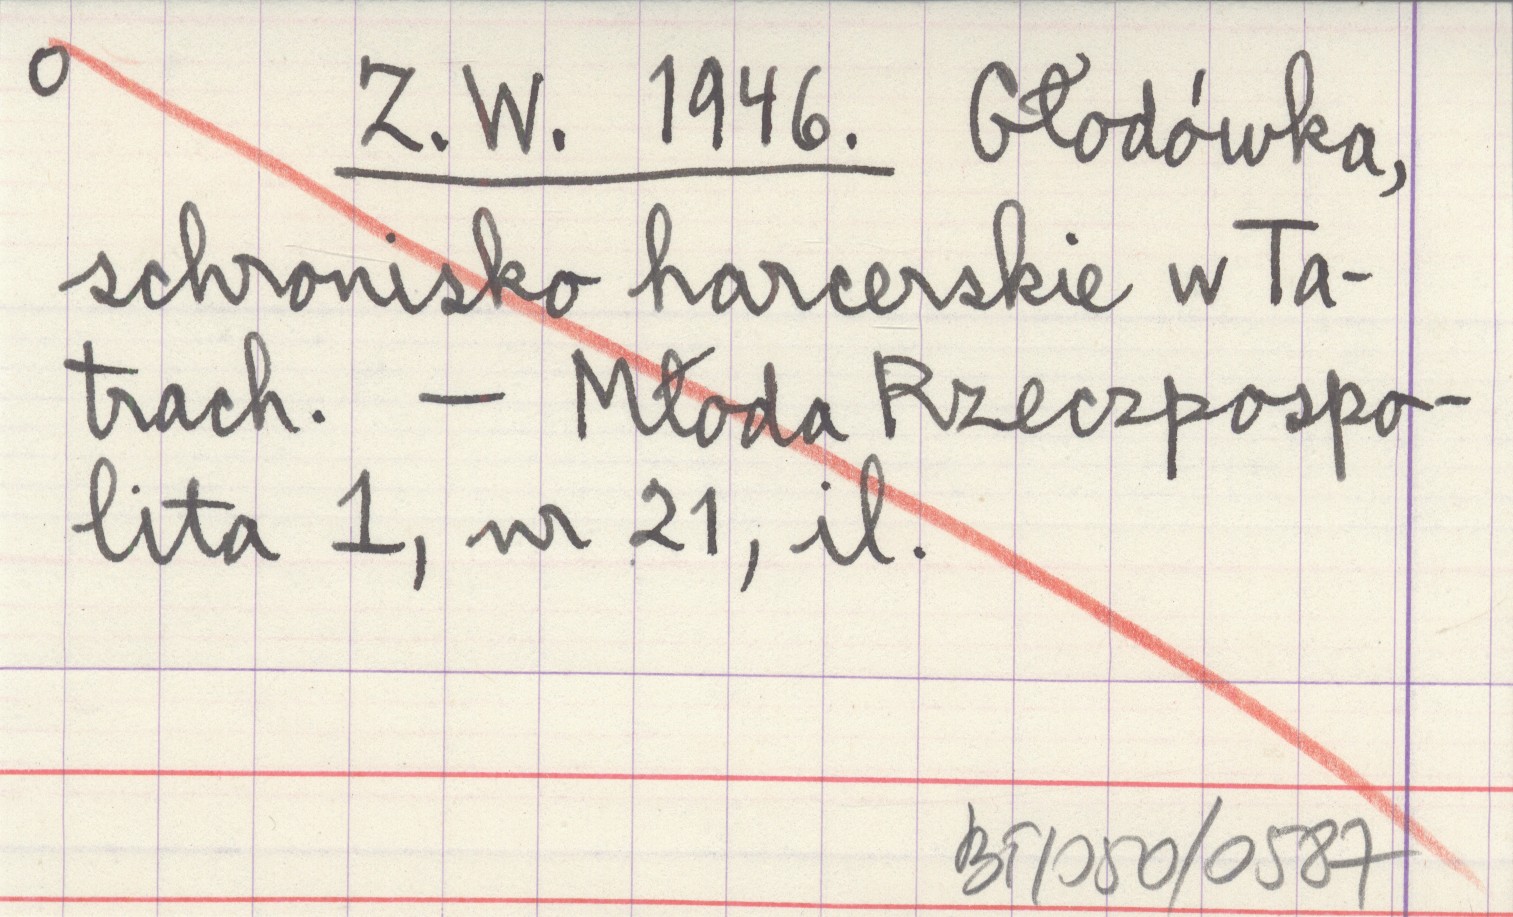 O Z.W. 1946. Głodówka,
schronisko harcerskie w Ta-
trach. — Młoda Rzeczpospo-
lita 1, nr 21, il.
BT/050/0587